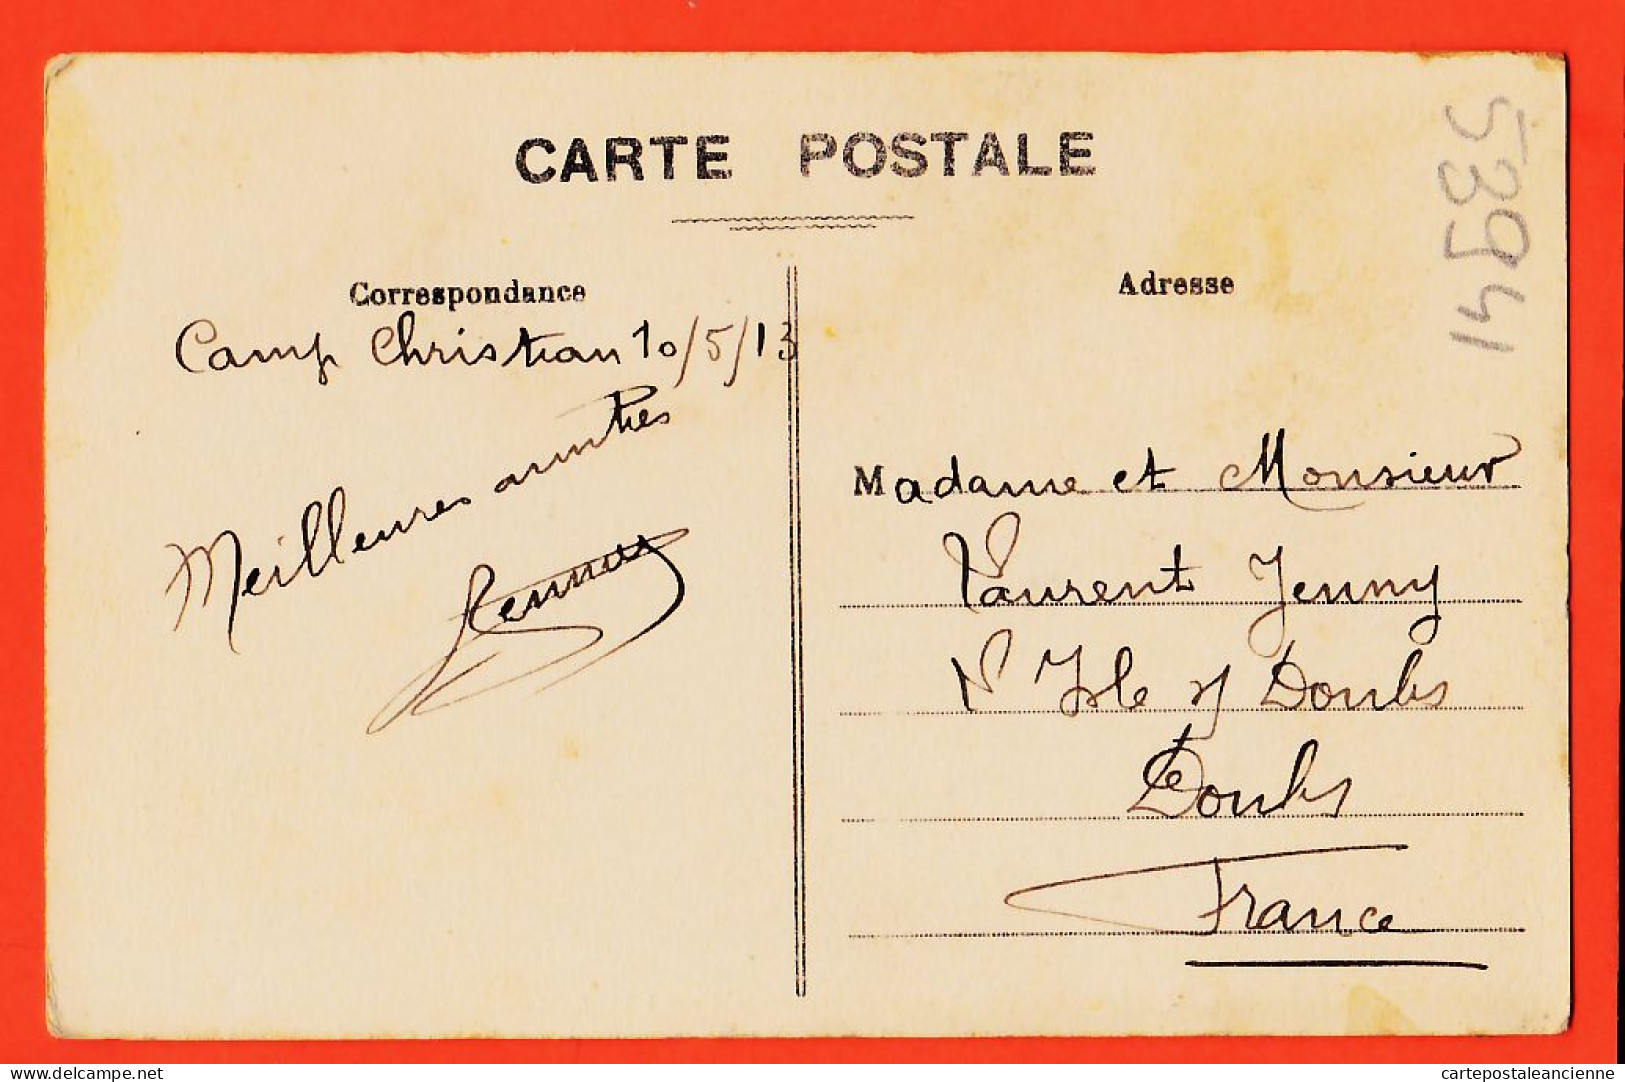 CARTE POSTALE
Correspondance
Adresse
53941
Camp Christian 10/5/13
Meilleures amitiés
Jenny
Madame et Monsieur
Laurent Jenny
L'Isle s/ Doubs
Doubs
France
delcampe.net
cartepostaleancienne